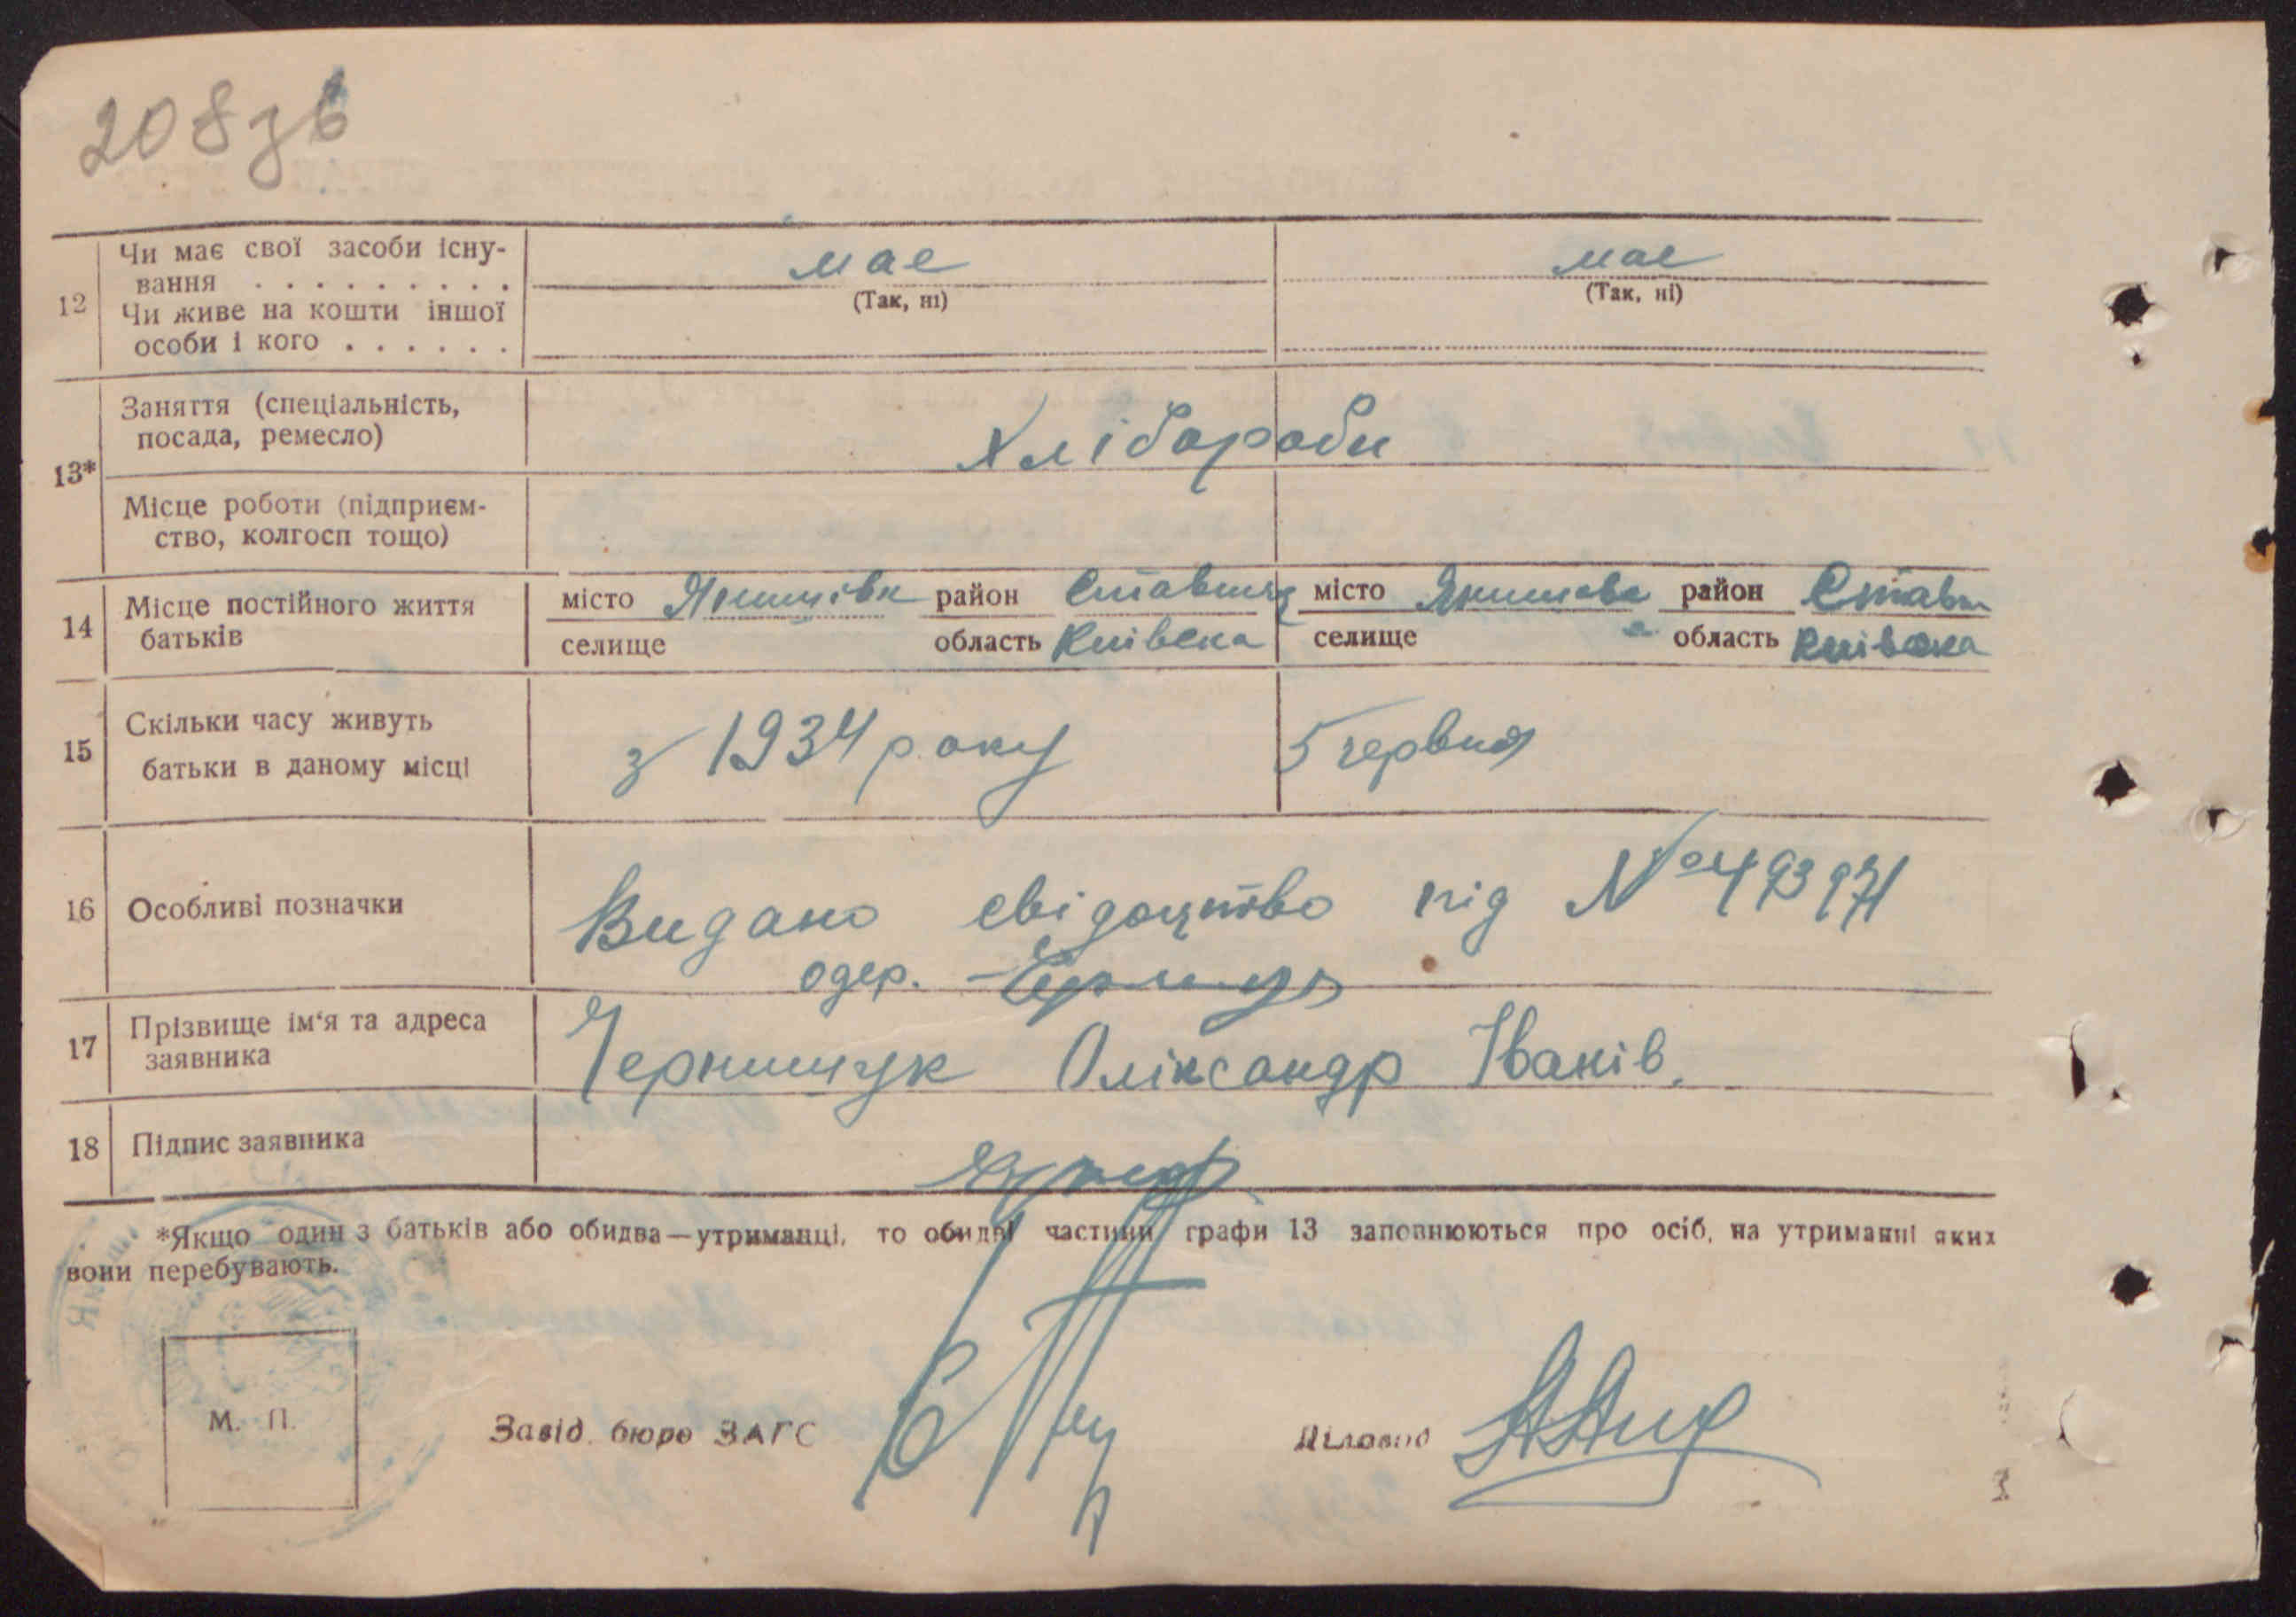 208зв
12 Чи має свої засоби існу-
вання . . . . . . . . . має має
(Так, ні) (Так, ні)
Чи живе на кошти іншої
особи і кого . . . . . .
13* Заняття (спеціальність,
посада, ремесло) Хлібороби
Місце роботи (підприєм-
ство, колгосп тощо)
14 Місце постійного життя
батьків
місто район місто район Ставищ
селище область Київска селище область Київска
15 Скільки часу живуть
батьки в даному місці
з 1934 року 5 червня
16 Особливі позначки
Видано свідоцтво під № 493971
одер.
17 Прізвище ім‘я та адреса
заявника
Чернищук Оліксандр Іванів.
18 Підпис заявника
*Якщо один з батьків або обидва—утриманці, то обидві частини графи 13 заповнюються про осіб, на утриманні яких
вони перебувають.
М. П.
Завід. бюро ЗАГС Діловод